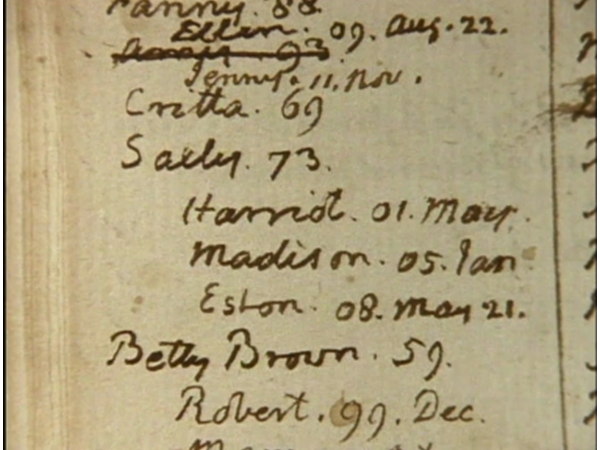 Fanny. 88.
Ellen. 09. Aug. 22.
Jenny. 11. Nov.
Critta. 69
Sally. 73.
Harriot. 01. May.
Madison. 05. Jan
Eston. 08. May 21.
Betty Brown. 59.
Robert. 99. Dec.